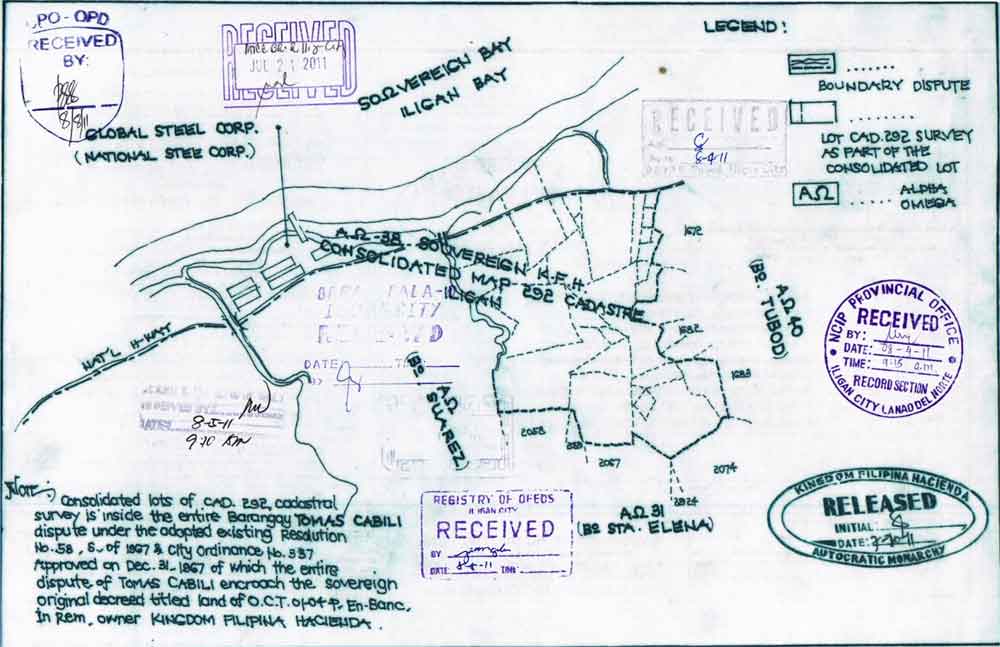 CPO-OPD
RECEIVED
BY:
8/8/11
RECEIVED
JUL 21 2011
SOΩVEREIGN BAY
ILIGAN BAY
LEGEND:
BOUNDARY DISPUTE
LOT CAD. 292 SURVEY
AS PART OF THE
CONSOLIDATED LOT
AΩ ..... ALPHA
OMEGA
GLOBAL STEEL CORP.
(NATIONAL STEE CORP.)
RECEIVED
8-4-11
AΩ-38- SOVEREIGN K.F.H.
CONSOLIDATED MAP-292 CADASTRE
ILIGAN
1672
AΩ 40
(Bo. TUBOD)
1682
1683
NAT'L H-WAY
RECEIVED
DATE
AΩ
Bo. SUAREZ)
8-5-11
9:20 AM
2058
2067
2074
2024
AΩ 31
(Bo STA. ELENA)
NCIP PROVINCIAL OFFICE
RECEIVED
BY:
DATE: 08-4-11
TIME: 9:15 a.m
RECORD SECTION
ILIGAN CITY LANAO DEL NORTE
REGISTRY OF DEEDS
ILIGAN CITY
RECEIVED
BY
DATE: 8-4-11 TIME:
KINGDOM FILIPINA HACIENDA
RELEASED
INITIAL:
DATE:
AUTOCRATIC MONARCHY
Note:
Consolidated lots of CAD. 292, cadastral
survey is inside the entire Barangay TOMAS CABILI
dispute under the adopted existing Resolution
No. 58, S. of 1967 & City Ordinance No. 337
Approved on Dec. 31. 1967 of which the entire
dispute of TOMAS CABILI encroach the sovereign
original decreed titled land of O.C.T. 01-04 P, En-Banc,
In Rem, owner KINGDOM FILIPINA HACIENDA.